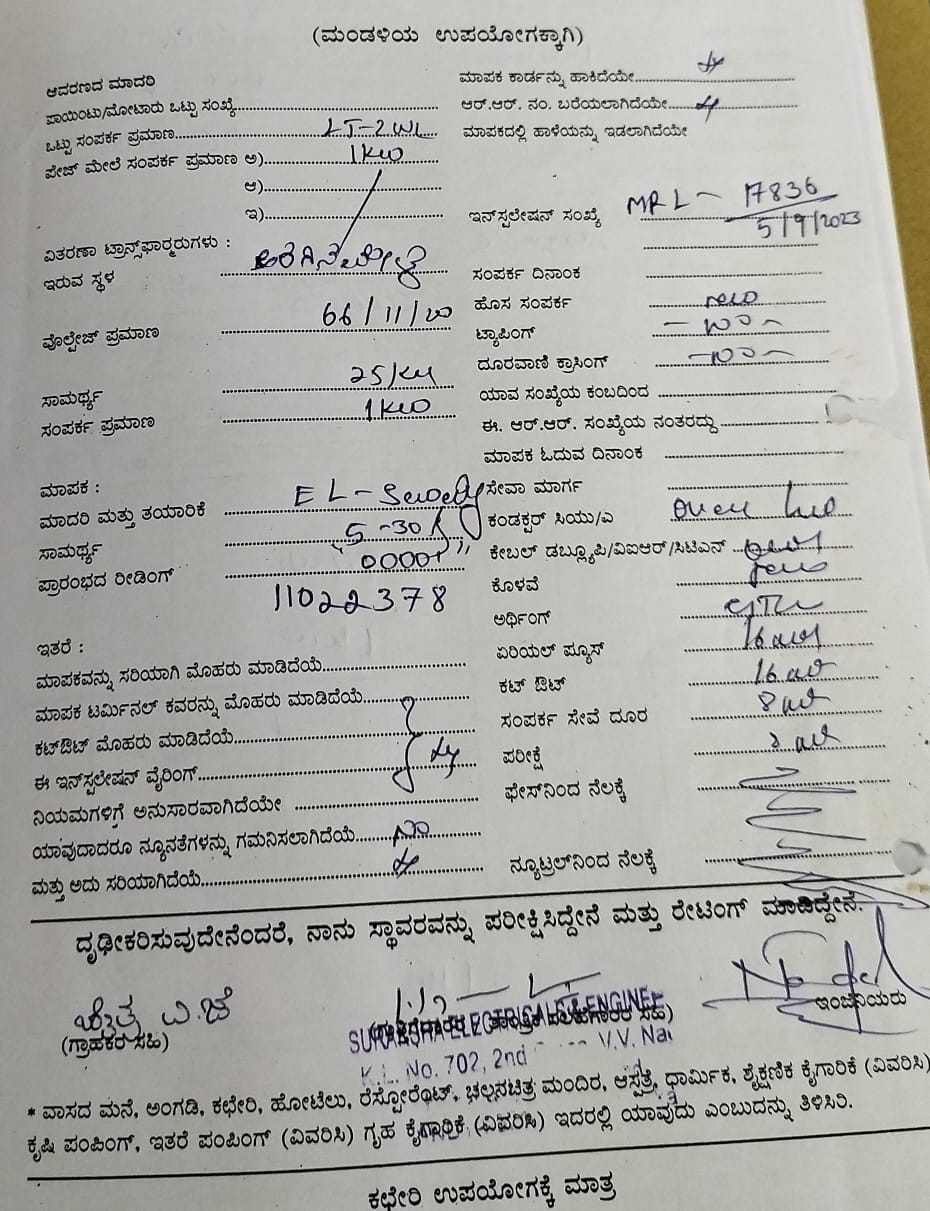 (ಮಂಡಳಿಯ ಉಪಯೋಗಕ್ಕಾಗಿ)
ಆವರಣದ ಮಾದರಿ
ಮಾಪಕ ಕಾರ್ಡನ್ನು ಹಾಕಿದೆಯೇ
ಪಾಯಿಂಟು/ಮೋಟಾರು ಒಟ್ಟು ಸಂಖ್ಯೆ
ಆರ್.ಆರ್. ನಂ. ಬರೆಯಲಾಗಿದೆಯೇ
ಒಟ್ಟು ಸಂಪರ್ಕ ಪ್ರಮಾಣ LT-2
ಮಾಪಕದಲ್ಲಿ ಹಾಳೆಯನ್ನು ಇಡಲಾಗಿದೆಯೇ
ಪೇಜ್ ಮೇಲೆ ಸಂಪರ್ಕ ಪ್ರಮಾಣ ಅ) 1KW
ಆ)
ಇ)
ಇನ್‌ಸ್ಟಲೇಷನ್ ಸಂಖ್ಯೆ MRL - 17836
5/9/2023
ವಿತರಣಾ ಟ್ರಾನ್ಸ್‌ಫಾರ್ಮರುಗಳು :
ಇರುವ ಸ್ಥಳ
ಸಂಪರ್ಕ ದಿನಾಂಕ
ಹೊಸ ಸಂಪರ್ಕ new
ವೊಲ್ಟೇಜ್ ಪ್ರಮಾಣ 66/11/
ಟ್ಯಾಪಿಂಗ್
ದೂರವಾಣಿ ಕ್ರಾಸಿಂಗ್
ಸಾಮರ್ಥ್ಯ 25/
ಯಾವ ಸಂಖ್ಯೆಯ ಕಂಬದಿಂದ
ಸಂಪರ್ಕ ಪ್ರಮಾಣ 1KW
ಈ. ಆರ್.ಆರ್. ಸಂಖ್ಯೆಯ ನಂತರದ್ದು
ಮಾಪಕ ಓದುವ ದಿನಾಂಕ
ಮಾಪಕ :
ಸೇವಾ ಮಾರ್ಗ
ಮಾದರಿ ಮತ್ತು ತಯಾರಿಕೆ EL-
ಕಂಡಕ್ಟರ್ ಸಿಯು/ಎ
ಸಾಮರ್ಥ್ಯ 5-30
ಕೇಬಲ್ ಡಬ್ಲ್ಯೂಪಿ/ವಿಐಆರ್/ಸಿಟಿಎನ್
ಪ್ರಾರಂಭದ ರೀಡಿಂಗ್
11022378
ಕೊಳವೆ
ಅರ್ಥಿಂಗ್
ಇತರೆ :
ಏರಿಯಲ್ ಫ್ಯೂಸ್ 16
ಮಾಪಕವನ್ನು ಸರಿಯಾಗಿ ಮೊಹರು ಮಾಡಿದೆಯೆ
ಕಟ್ ಔಟ್ 16
ಮಾಪಕ ಟರ್ಮಿನಲ್ ಕವರನ್ನು ಮೊಹರು ಮಾಡಿದೆಯೆ
ಸಂಪರ್ಕ ಸೇವೆ ದೂರ 8
ಕಟ್‌ಔಟ್ ಮೊಹರು ಮಾಡಿದೆಯೆ
ಪರೀಕ್ಷೆ
ಈ ಇನ್‌ಸ್ಟಲೇಷನ್ ವೈರಿಂಗ್
ಫೇಸ್‌ನಿಂದ ನೆಲಕ್ಕೆ
ನಿಯಮಗಳಿಗೆ ಅನುಸಾರವಾಗಿದೆಯೇ
ಯಾವುದಾದರೂ ನ್ಯೂನತೆಗಳನ್ನು ಗಮನಿಸಲಾಗಿದೆಯೆ No
ಮತ್ತು ಅದು ಸರಿಯಾಗಿದೆಯೆ
ನ್ಯೂಟ್ರಲ್‌ನಿಂದ ನೆಲಕ್ಕೆ
ದೃಢೀಕರಿಸುವುದೇನೆಂದರೆ, ನಾನು ಸ್ಥಾವರವನ್ನು ಪರೀಕ್ಷಿಸಿದ್ದೇನೆ ಮತ್ತು ರೇಟಿಂಗ್ ಮಾಡಿದ್ದೇನೆ.
(ಗ್ರಾಹಕರ ಸಹಿ)
ಸಹಿ)
ಇಂಜಿನಿಯರು
ELECTRICALS & ENGINEE
K.L. No. 702, 2nd V.V. Na
* ವಾಸದ ಮನೆ, ಅಂಗಡಿ, ಕಛೇರಿ, ಹೋಟೆಲು, ರೆಸ್ಟೋರೆಂಟ್, ಚಲನಚಿತ್ರ ಮಂದಿರ, ಆಸ್ಪತ್ರೆ, ಧಾರ್ಮಿಕ, ಶೈಕ್ಷಣಿಕ ಕೈಗಾರಿಕೆ (ವಿವರಿಸಿ)
ಕೃಷಿ ಪಂಪಿಂಗ್, ಇತರೆ ಪಂಪಿಂಗ್ (ವಿವರಿಸಿ) ಗೃಹ ಕೈಗಾರಿಕೆ (ವಿವರಿಸಿ) ಇದರಲ್ಲಿ ಯಾವುದು ಎಂಬುದನ್ನು ತಿಳಿಸಿರಿ.
ಕಛೇರಿ ಉಪಯೋಗಕ್ಕೆ ಮಾತ್ರ